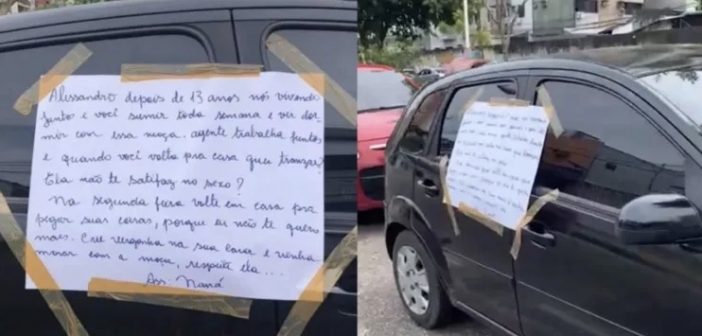 Alissandro depois de 13 anos nós vivendo
junto e você sumir toda semana e vir dor
mir com essa moça. agente trabalha juntos
e quando você volta pra casa quer tranzar?
Ela não te satifaz no sexo?
Na segunda feira volte em casa pra
pegar suas coisas, porque eu não te quero
mais. Crie vergonha na sua cara e venha
morar com a moça, respeite ela...
Ass. Naná